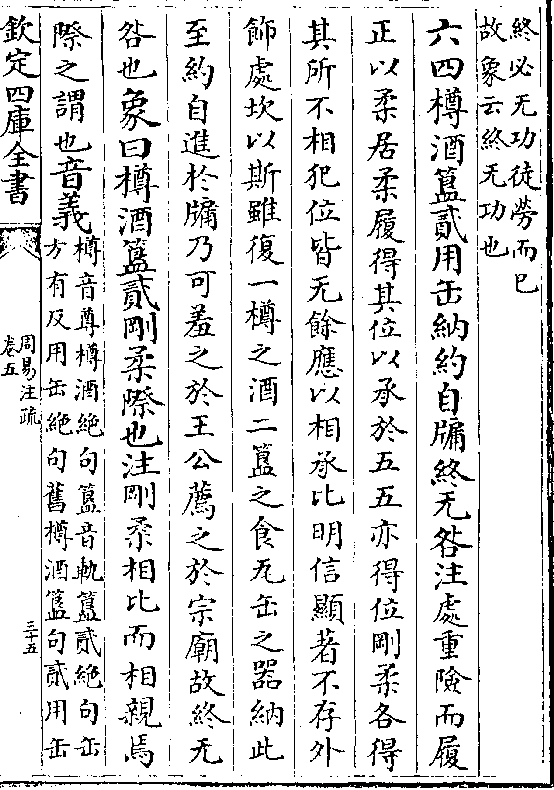 終必无功徒勞而已
故象云終无功也
六四樽酒簋貳用缶納約自牖終无咎注處重險而履
正以柔居柔履得其位以承於五五亦得位剛柔各得
其所不相犯位皆无餘應以相承比明信顯著不存外
飾處坎以斯雖復一樽之酒二簋之食瓦缶之器納此
至約自進於牖乃可羞之於王公薦之於宗廟故終无
咎也象曰樽酒簋貳剛柔際也注剛柔相比而相親焉
際之謂也音義樽音尊樽酒絶句簋音軌簋貳絶句缶
方有反用缶絶句舊樽酒簋句貳用缶
欽定四庫全書
周易注疏
卷五
三十五